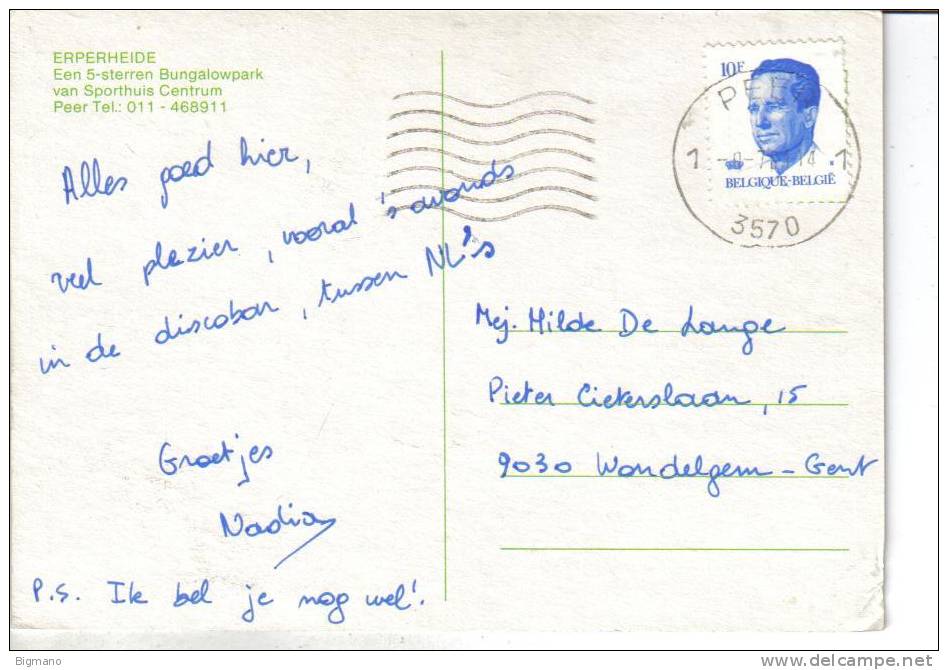 ERPERHEIDE
Een 5-sterren Bungalowpark
van Sporthuis Centrum
Peer Tel.: 011 - 468911
Alles goed hier,
veel plezier, vooral 's avonds
in de discobar, tussen NL's
Groetjes
Nadia
P.S. Ik bel je nog wel!
10F
BELGIQUE-BELGIË
1
14 1
3570
Mej. Hilde De Lange
Pieter Ciekerslaan, 15
9030 Wondelgem - Gent
Bigmano
www.delcampe.net